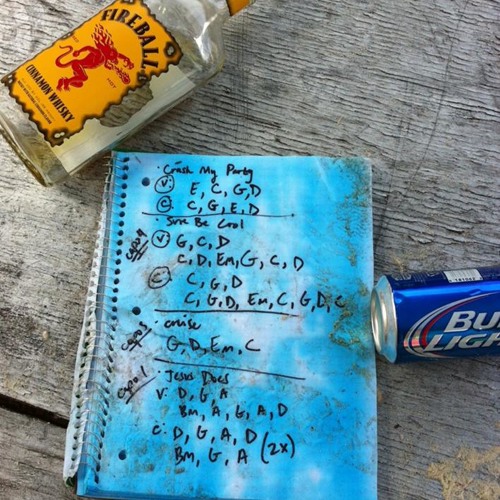 FIREBALL
CINNAMON WHISKY
Crash My Party
V: E, C, G, D
C: C, G, E, D
Sure Be Cool
capo 4
V: G, C, D
C, D, Em, G, C, D
C: C, G, D
C, G, D, Em, C, G, D, C
capo 3
cruise
G, D, Em, C
capo 1
Jesus Does
V: D, G, A
Bm, A, G, A, D
C: D, G, A, D
Bm, G, A (2x)
BU
LIGH